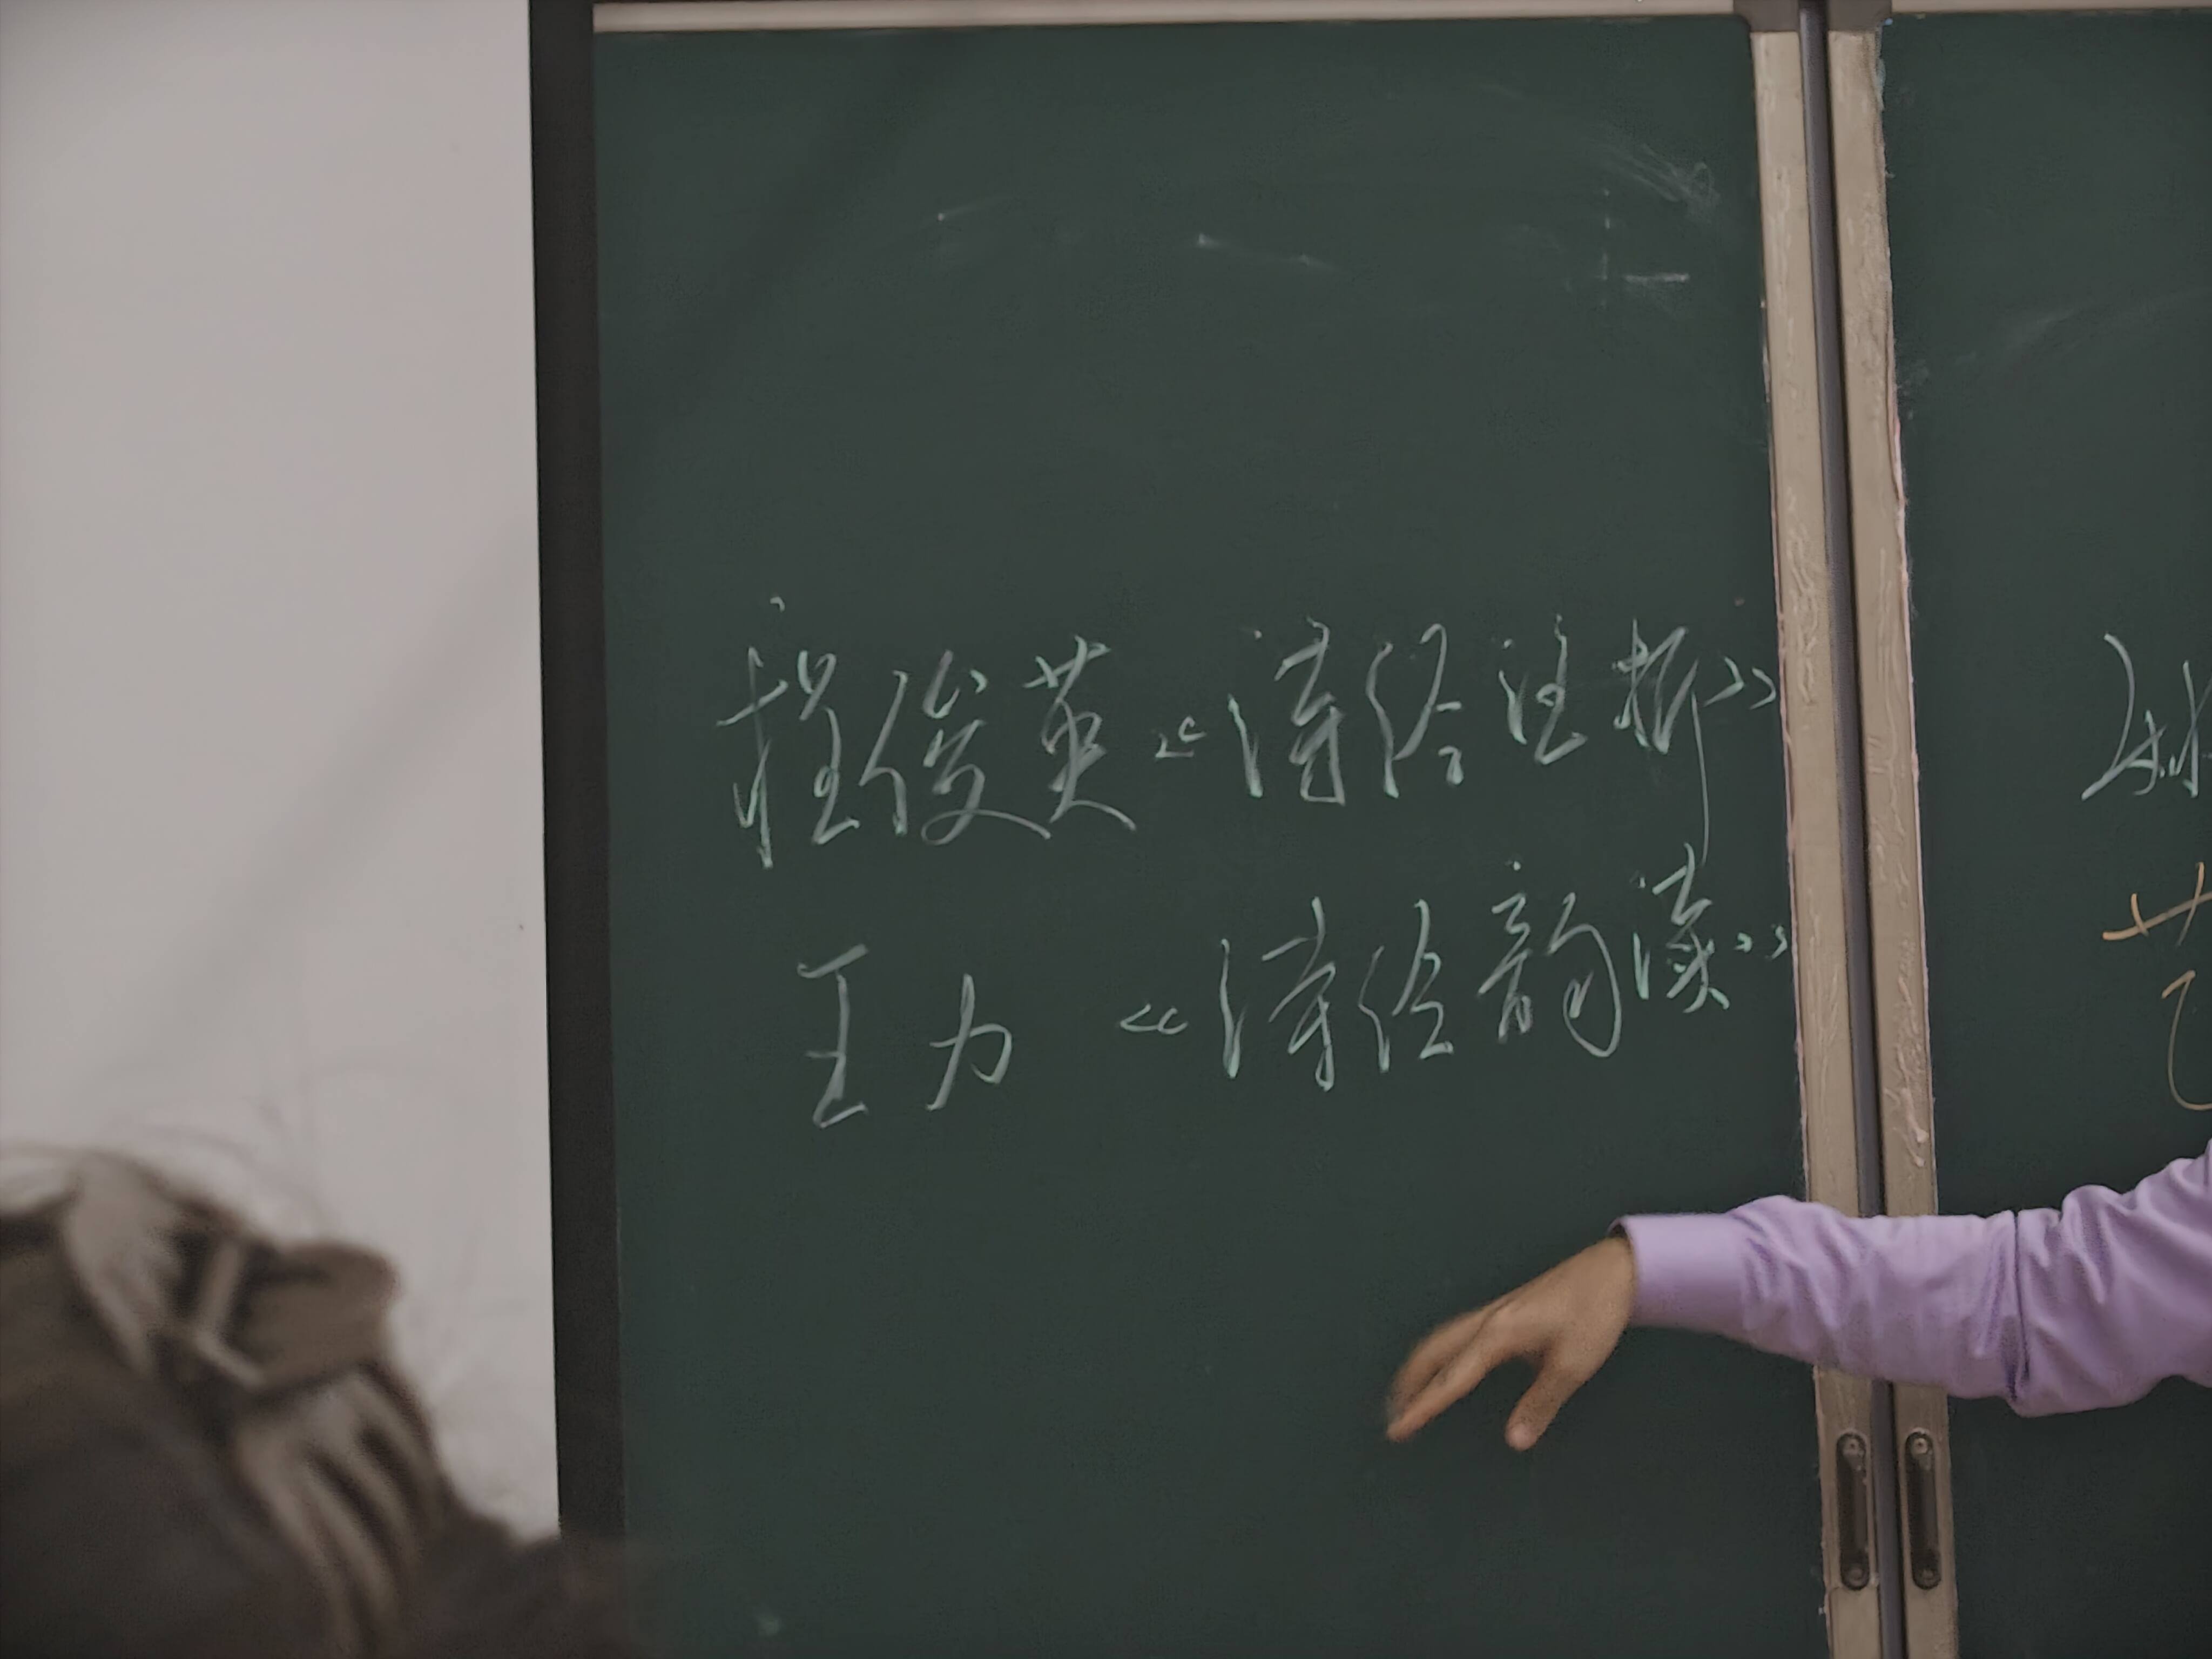 程俊英《诗经注析》
王力 《诗经韵读》
艺